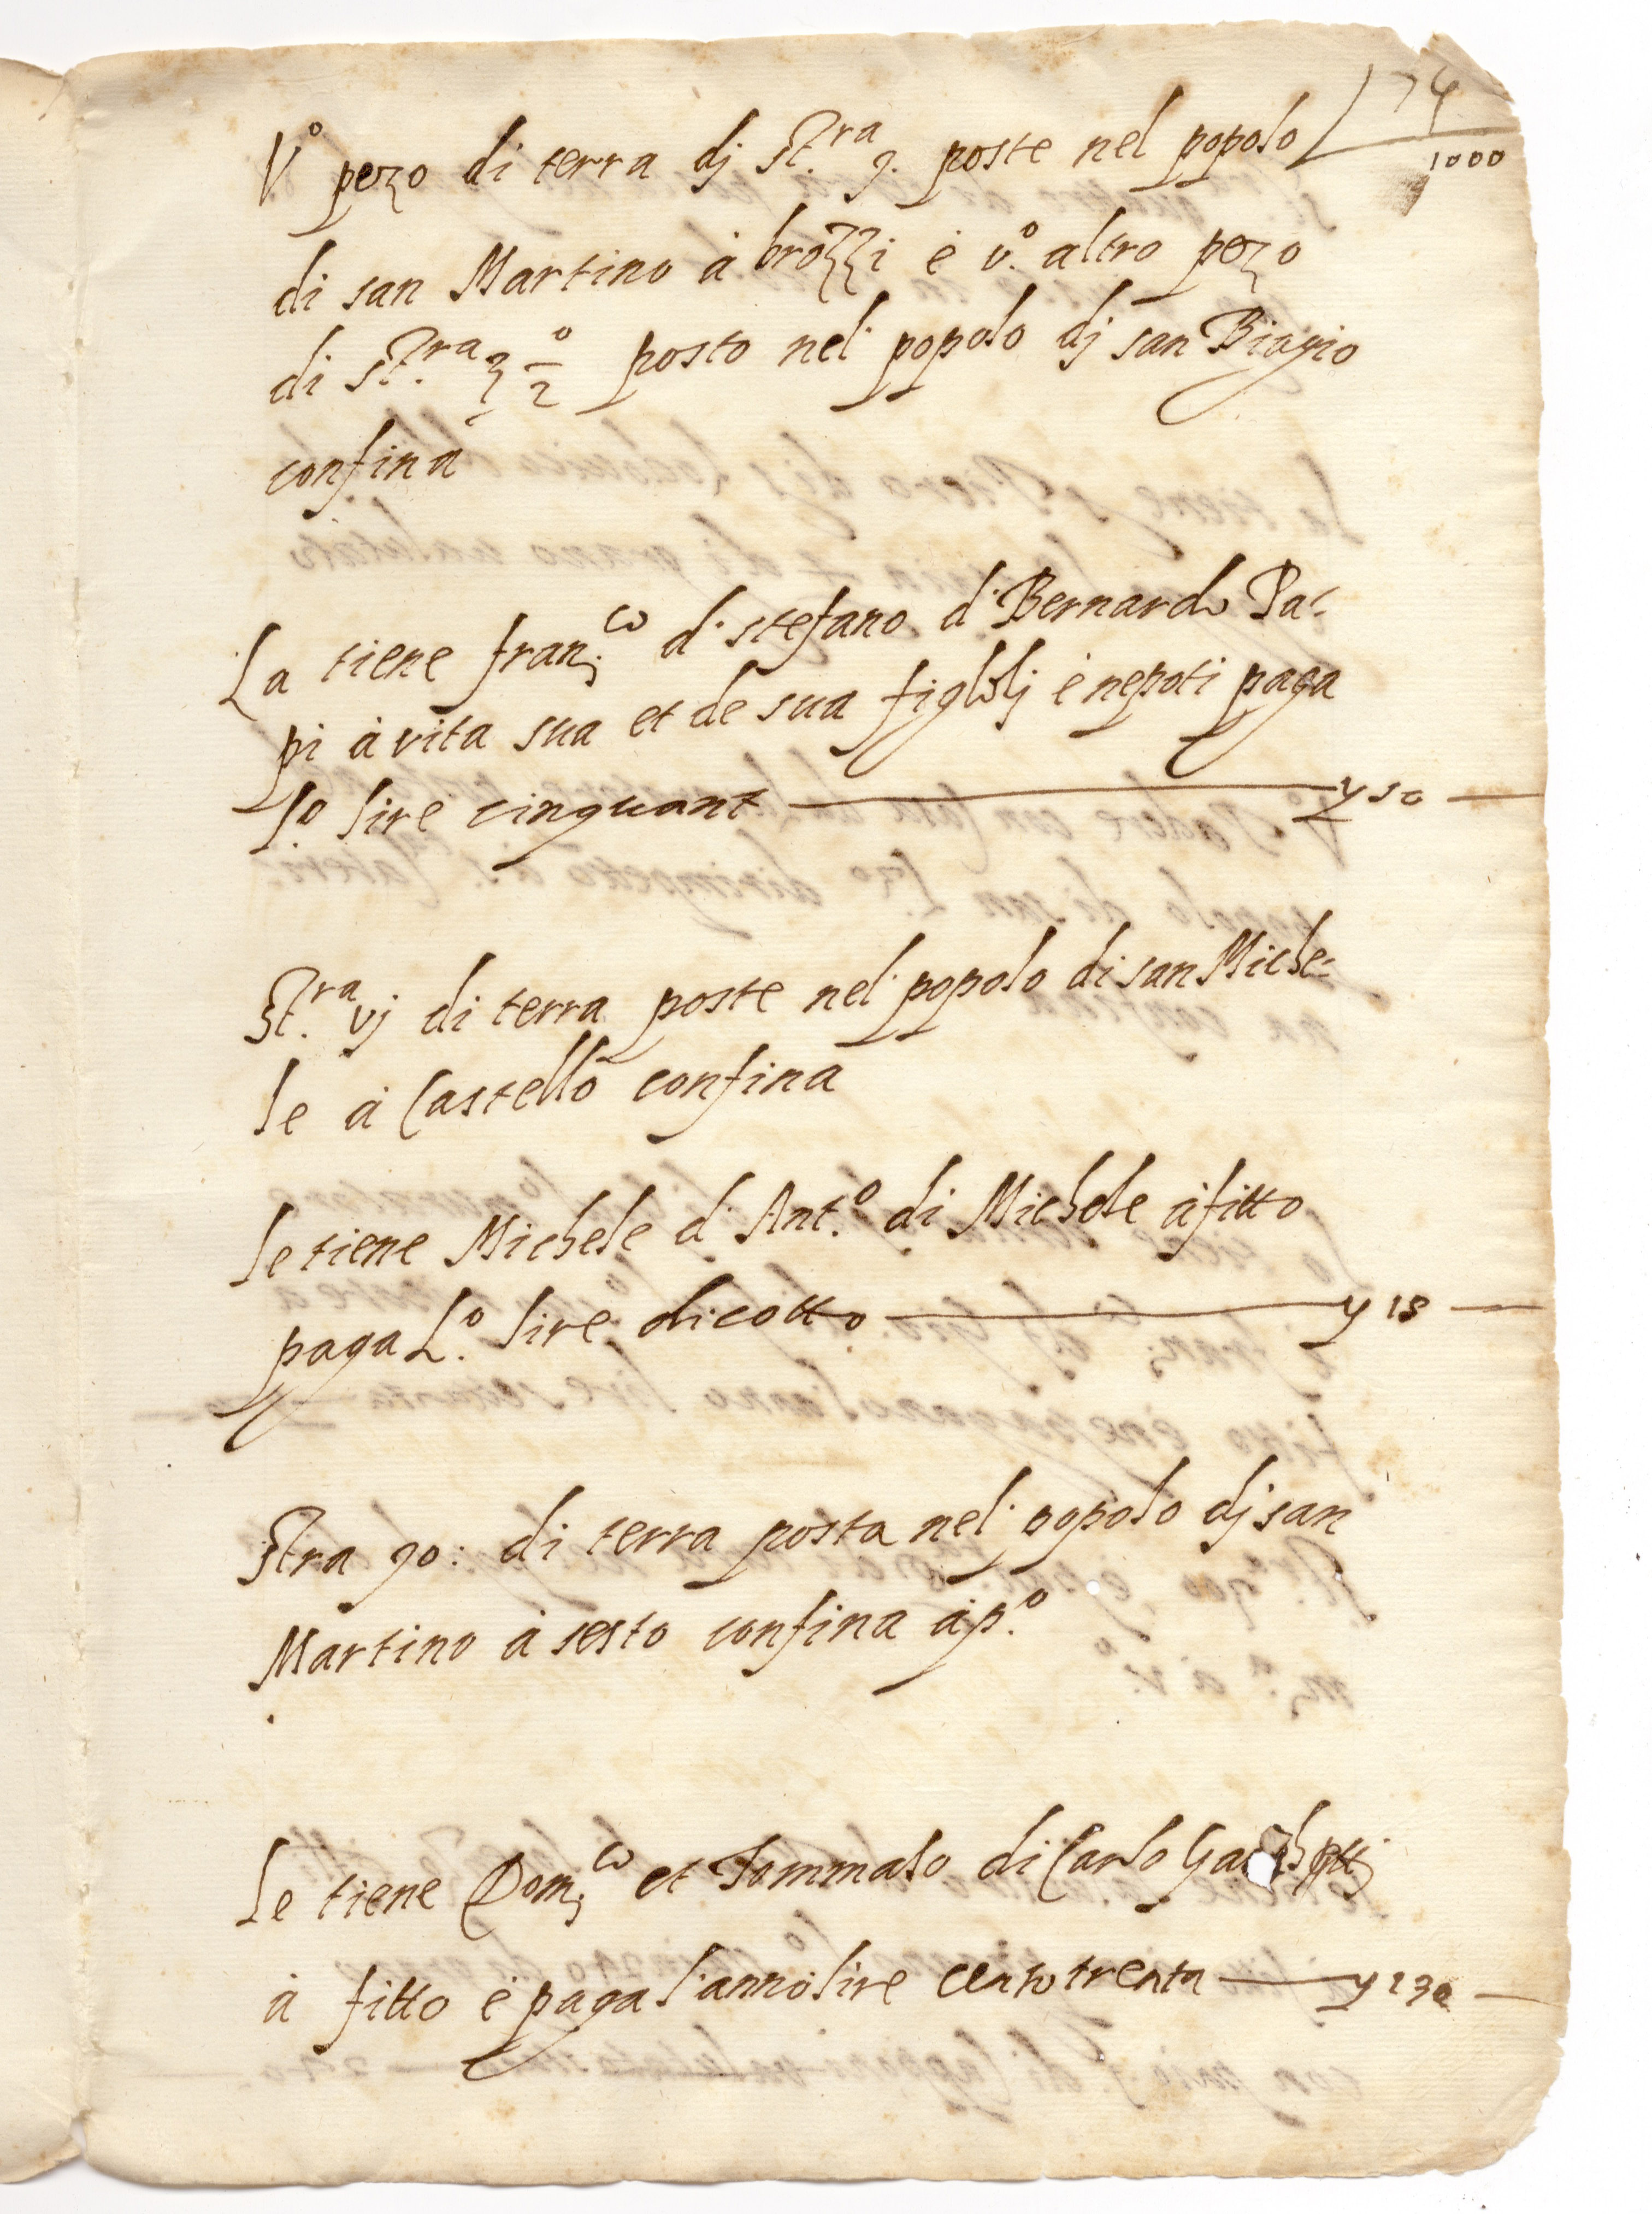 174
1000
V.o pezo di terra dj st.ra 9. poste nel popolo
di san Martino à brozzi è v.o altro pezo
di st.ra 3 o/2 posto nel popolo dj san Biagio
confina
La tiene fran.co d. stefano d. Bernardo Pa-
pi à vita sua et de sua figlolj è nepoti paga
l.o lire cinquant y 50
St.ra vj di terra poste nel popolo di san Miche-
le à Castello confina
le tiene Michele d. Ant.o di Michele à fitto
paga L.o lire dicotto y 18
Stra 90: di terra posta nel popolo dj san
Martino à sesto confina à p.o
le tiene Dom.co et Tommaso di Carlo
à fitto è paga l'anno lire cento trenta y 130